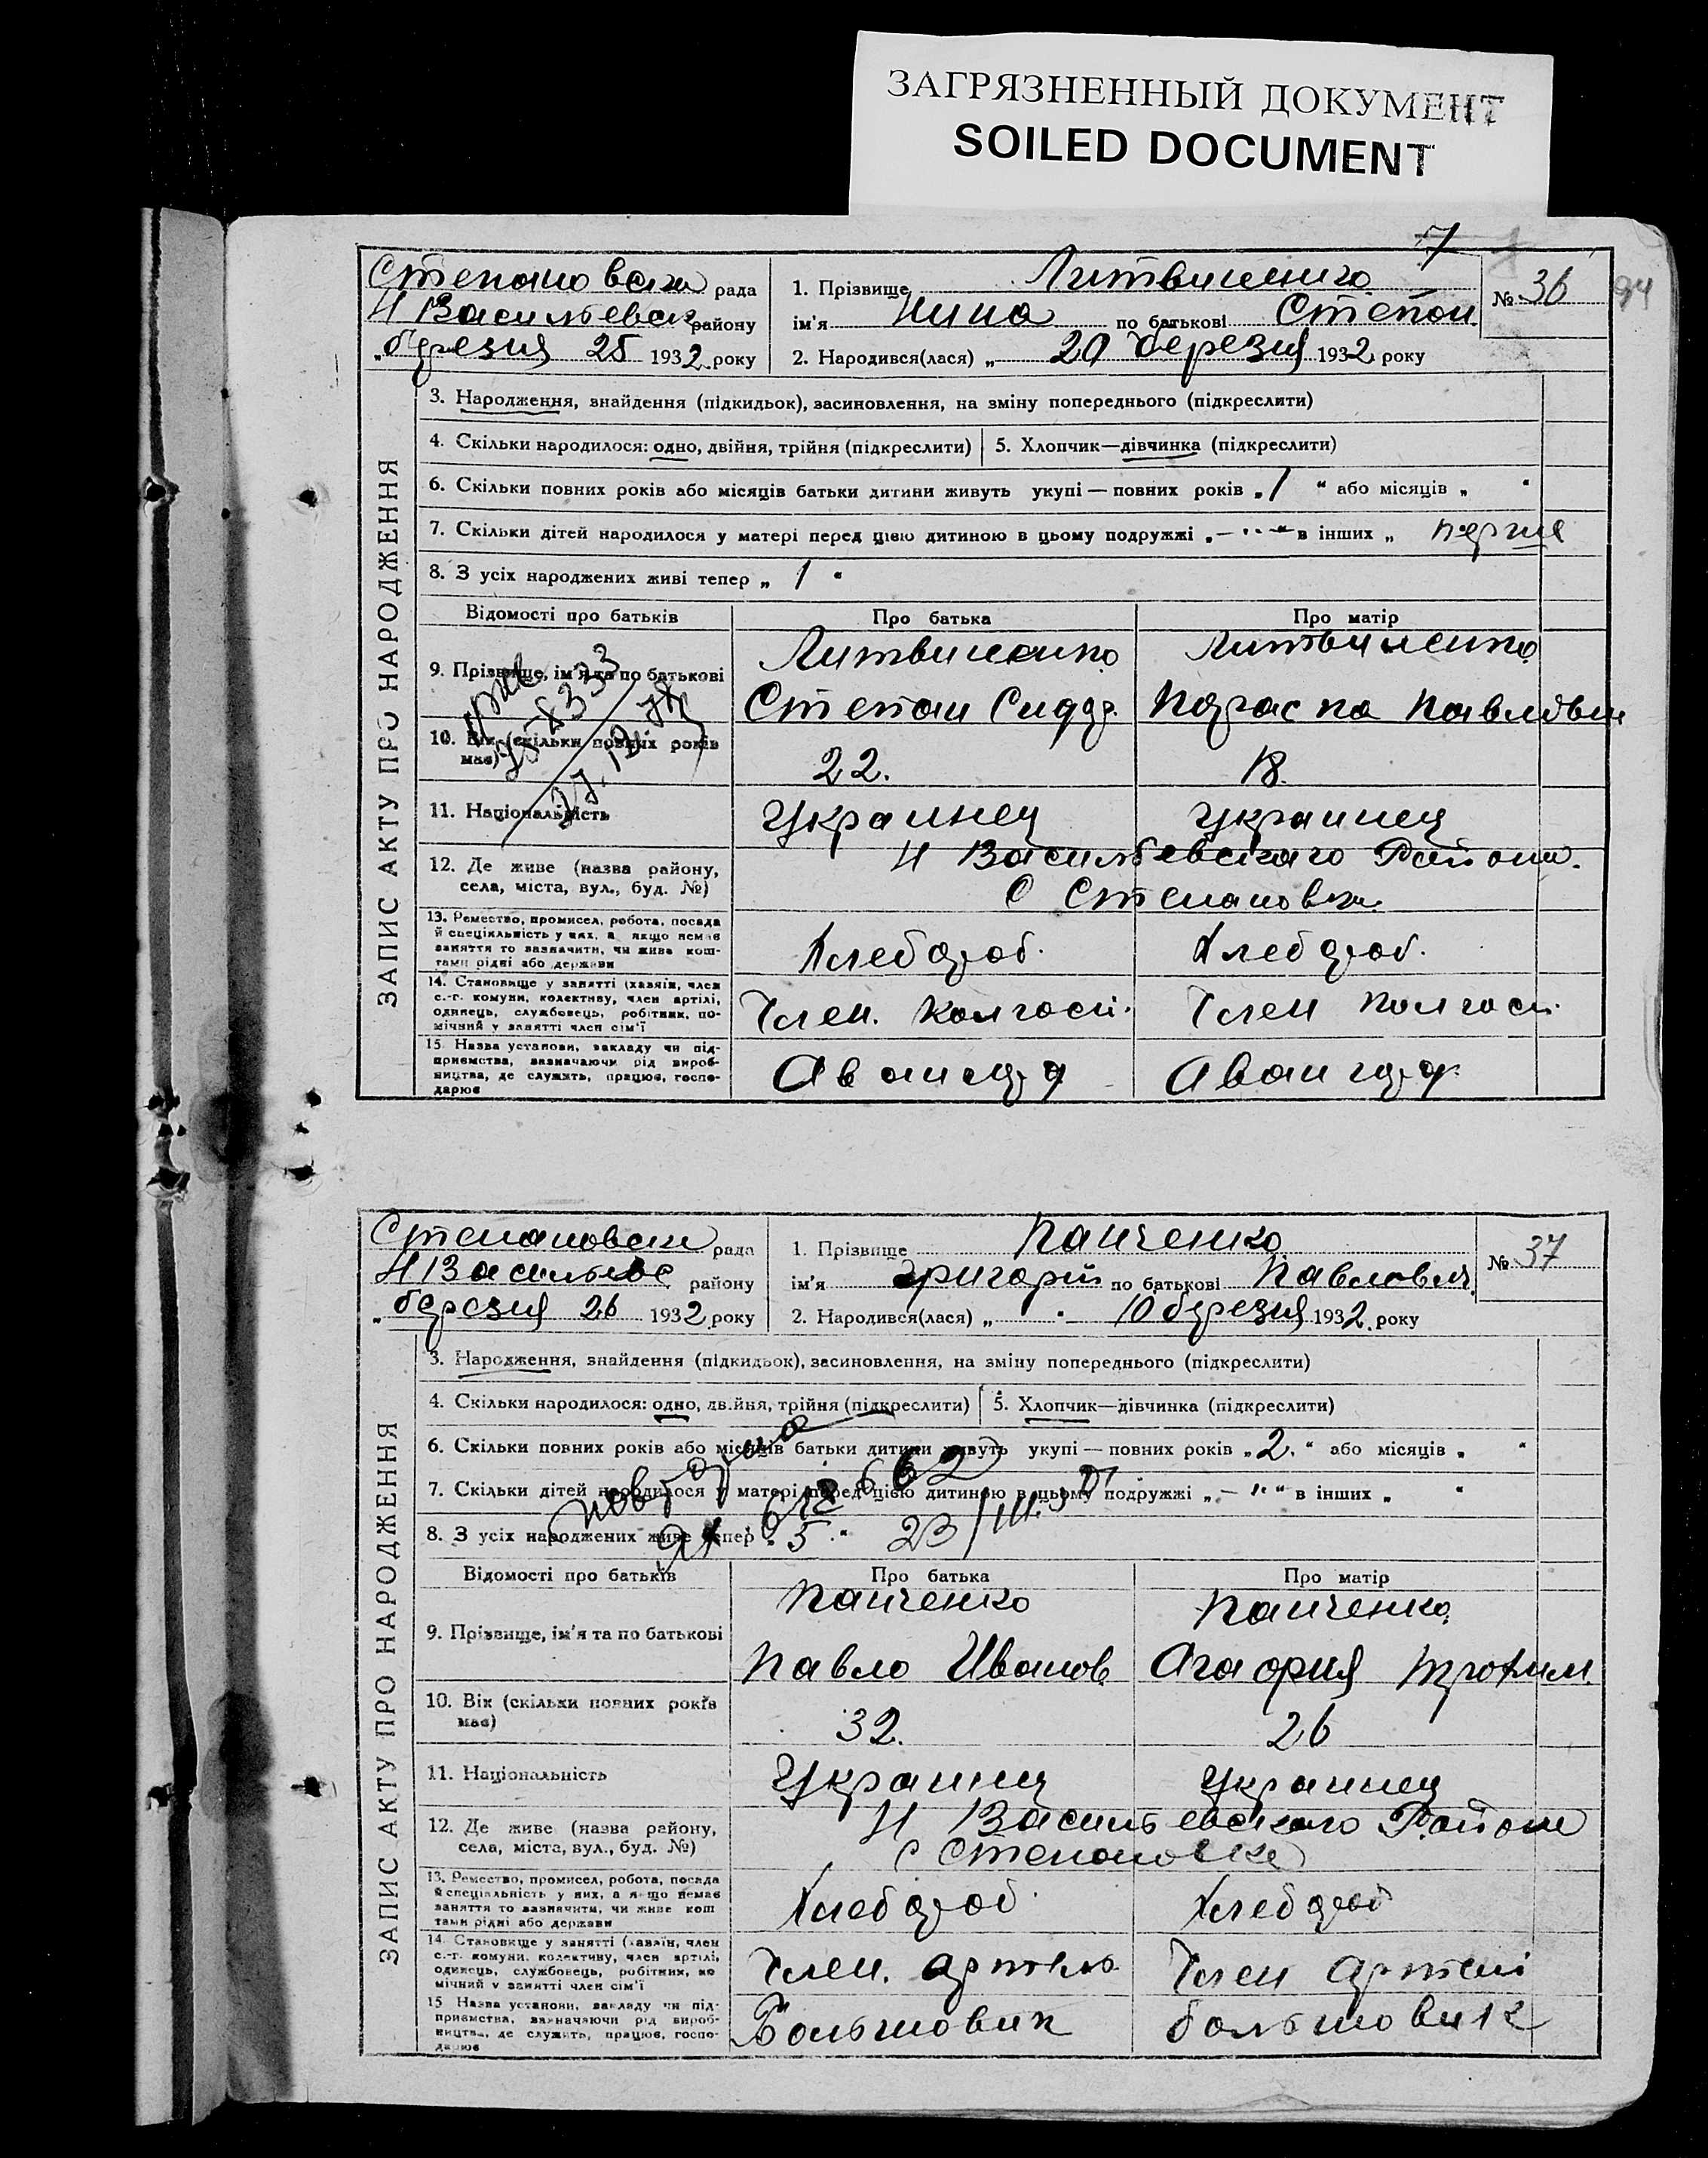 ЗАГРЯЗНЕННЫЙ ДОКУМЕНТ
SOILED DOCUMENT
7
94
Степановська рада
Н Васильевск району
„березня 25 1932 року
1. Прізвище Литвиненко
ім'я Нина по батькові Степан.
2. Народився(лася) „ 20 березня 1932 року
№ 36
ЗАПИС АКТУ ПРО НАРОДЖЕННЯ
3. Народження, знайдення (підкидьок), засиновлення, на зміну попереднього (підкреслити)
4. Скільки народилося: одно, двійня, трійня (підкреслити)
5. Хлопчик—дівчинка (підкреслити)
6. Скільки повних років або місяців батьки дитини живуть укупі — повних років „ 1 “ або місяців „ “
7. Скільки дітей народилося у матері перед цією дитиною в цьому подружжі „ — “ в інших „ перше
8. З усіх народжених живі тепер „ 1 “
Відомості про батьків Про батька Про матір
9. Прізвище, ім'я та по батькові
Литвиненко Литвиненко
Степан Сидор. Параска Павловн
10. Вік (скільки повних років має)
22. 18.
11. Національність
Украинец украинец
12. Де живе (назва району, села, міста, вул., буд. №)
Н Васильевского Района.
С Степановка
13. Ремество, промисел, робота, посада й спеціяльність у них, а якщо немає заняття то зазначити, чи живе коштами рідні або держави
Хлебороб. Хлебороб.
14. Становище у занятті (хазяїн, член с.-г. комуни, колективу, член артілі, одинець, службовець, робітник, помічний у занятті член сім'ї
Член. колгосп. Член колгосп.
15. Назва установи, закладу чи підприємства, зазначаючи рід виробництва, де служить, працює, господарює
Авангард Авангард
Степановськ рада
Н Васильевс району
„березня 26 1932 року
1. Прізвище Панченко
ім'я Григорій по батькові Павлович
2. Народився(лася) „ 10 березня 1932 року
№ 37
ЗАПИС АКТУ ПРО НАРОДЖЕННЯ
3. Народження, знайдення (підкидьок), засиновлення, на зміну попереднього (підкреслити)
4. Скільки народилося: одно, двійня, трійня (підкреслити)
5. Хлопчик—дівчинка (підкреслити)
6. Скільки повних років або місяців батьки дитини живуть укупі — повних років „ 2. “ або місяців „ “
7. Скільки дітей народилося у матері перед цією дитиною в цьому подружжі „ — “ в інших „ “
8. З усіх народжених живе тепер „ 5 “
Відомості про батьків Про батька Про матір
9. Прізвище, ім'я та по батькові
Панченко Панченко
Павло Иванов Агафия Трохим.
10. Вік (скільки повних років має)
32. 26
11. Національність
Украинец Украинец
12. Де живе (назва району, села, міста, вул., буд. №)
Н Васильевского Района
с Степановка
13. Ремество, промисел, робота, посада й спеціяльність у них, а якщо немає заняття то зазначити, чи живе коштами рідні або держави
Хлебороб. Хлебороб
14. Становище у занятті (хазяїн, член с.-г. комуни, колективу, член артілі, одинець, службовець, робітник, помічний у занятті член сім'ї
Член. артель Член артелі
15. Назва установи, закладу чи підприємства, зазначаючи рід виробництва, де служить, працює, господарює
Большовик большовик